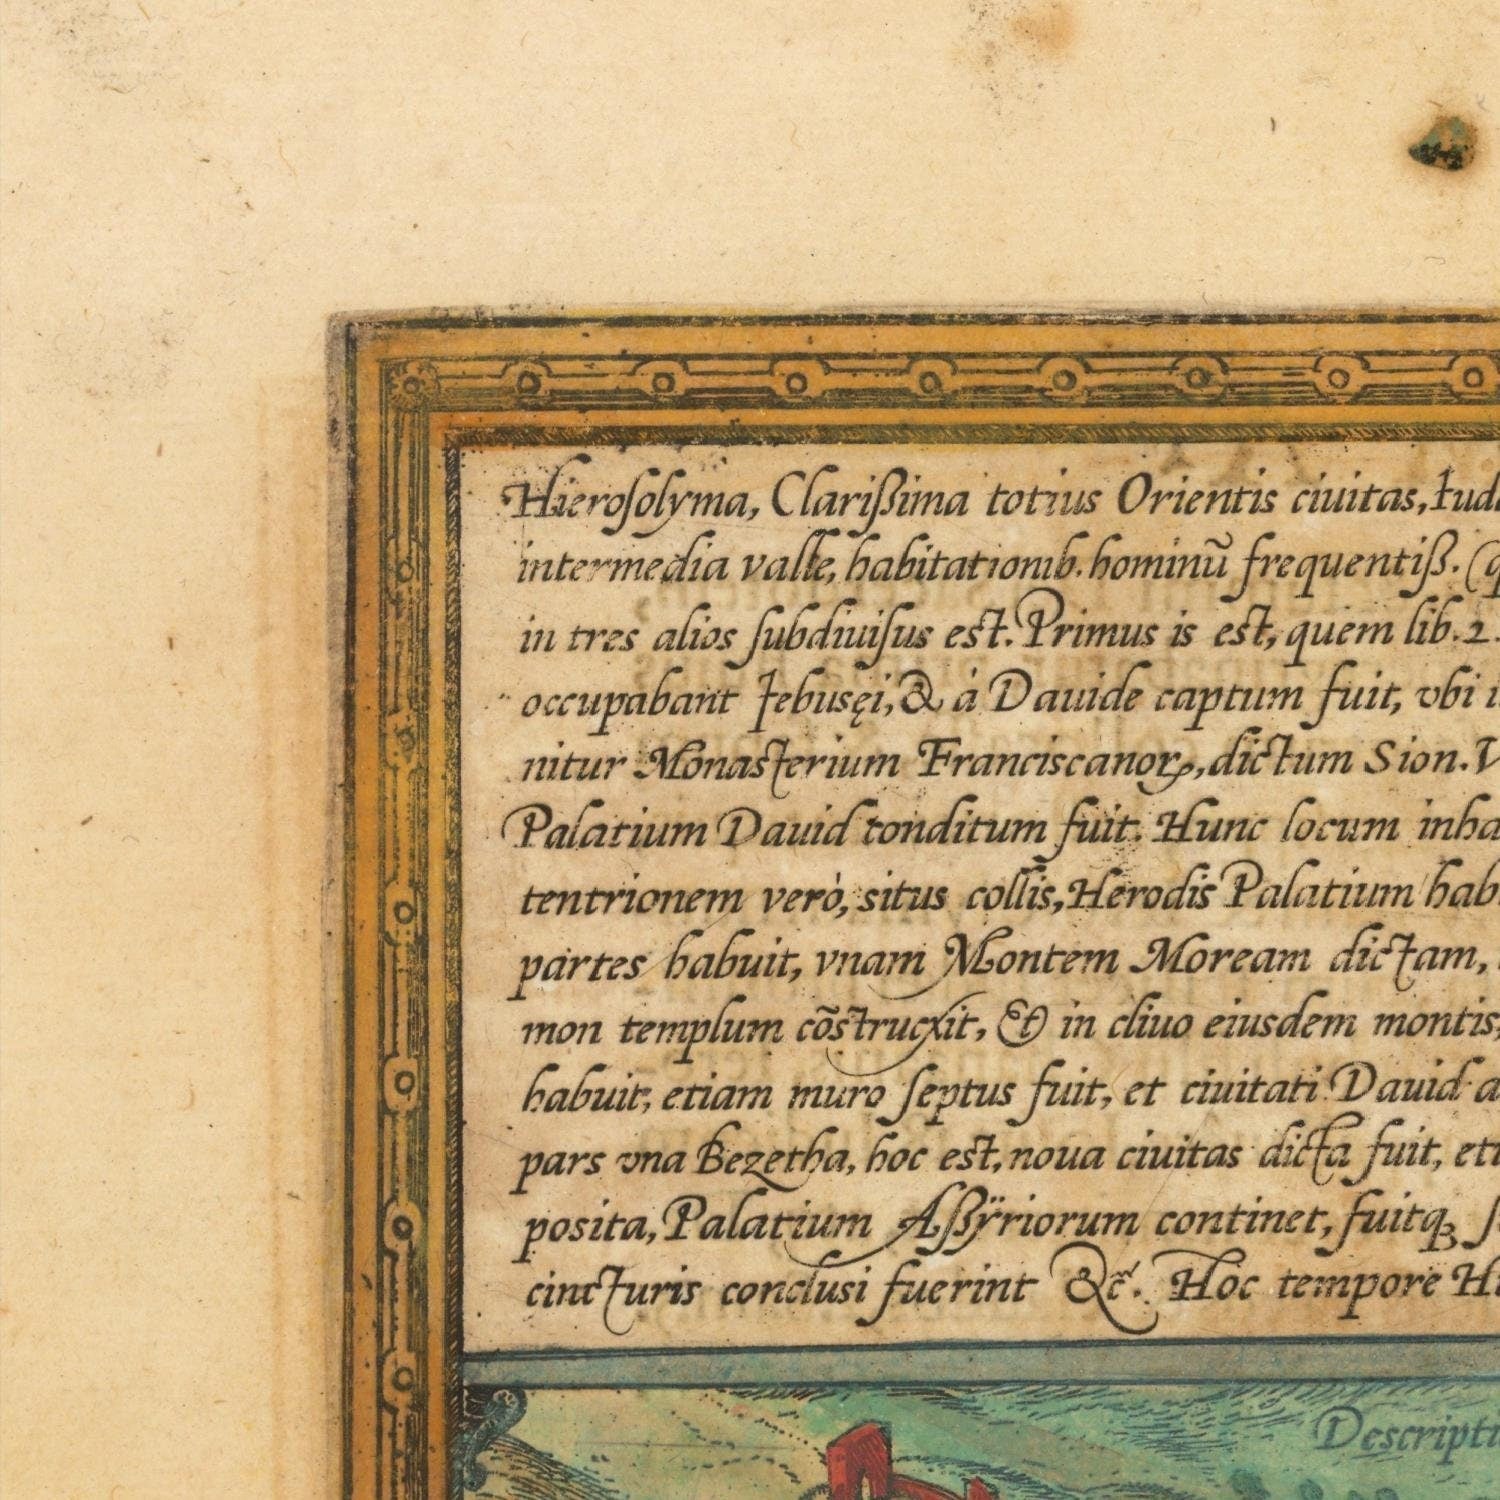 Hieroſolyma, Clariſſima totius Orientis ciuitas, Iud
intermedia valle, habitationib. hominū frequentiß. (q
in tres alios ſubdiuiſus est. Primus is est, quem lib. 2.
occupabant Jebusęi, & à Dauide captum fuit, vbi
nitur Monasterium Franciscanoꝝ, dictum Sion. V
Palatium Dauid conditum fuit. Hunc locum inha
tentrionem verò, situs collis, Herodis Palatium hab
partes habuit, vnam Montem Moream dictam,
mon templum cōstrucxit, & in cliuo eiusdem montis,
habuit, etiam muro ſeptus fuit, et ciuitati Dauid a
pars vna Bezetha, hoc est, noua ciuitas dicta fuit, eti
posita, Palatium Aßÿriorum continet, fuitq́ꝫ ſ
cincturis conclusi fuerint &c. Hoc tempore Hi
Descripti